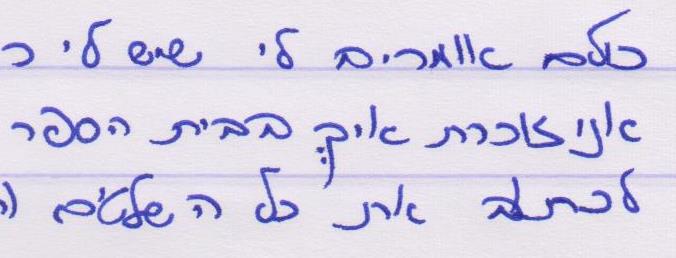 כולם אומרים לי שיש לי כ
אני זוכרת איך בבית הספר
לכתוב את כל השלטים